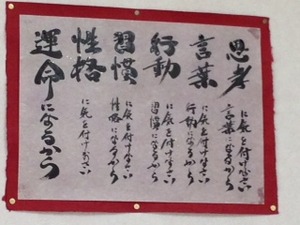 思考
に気を付けなさい
言葉になるから
言葉
に気を付けなさい
行動になるから
行動
に気を付けなさい
習慣になるから
習慣
に気を付けなさい
性格になるから
性格
に気を付けなさい
運命になるから